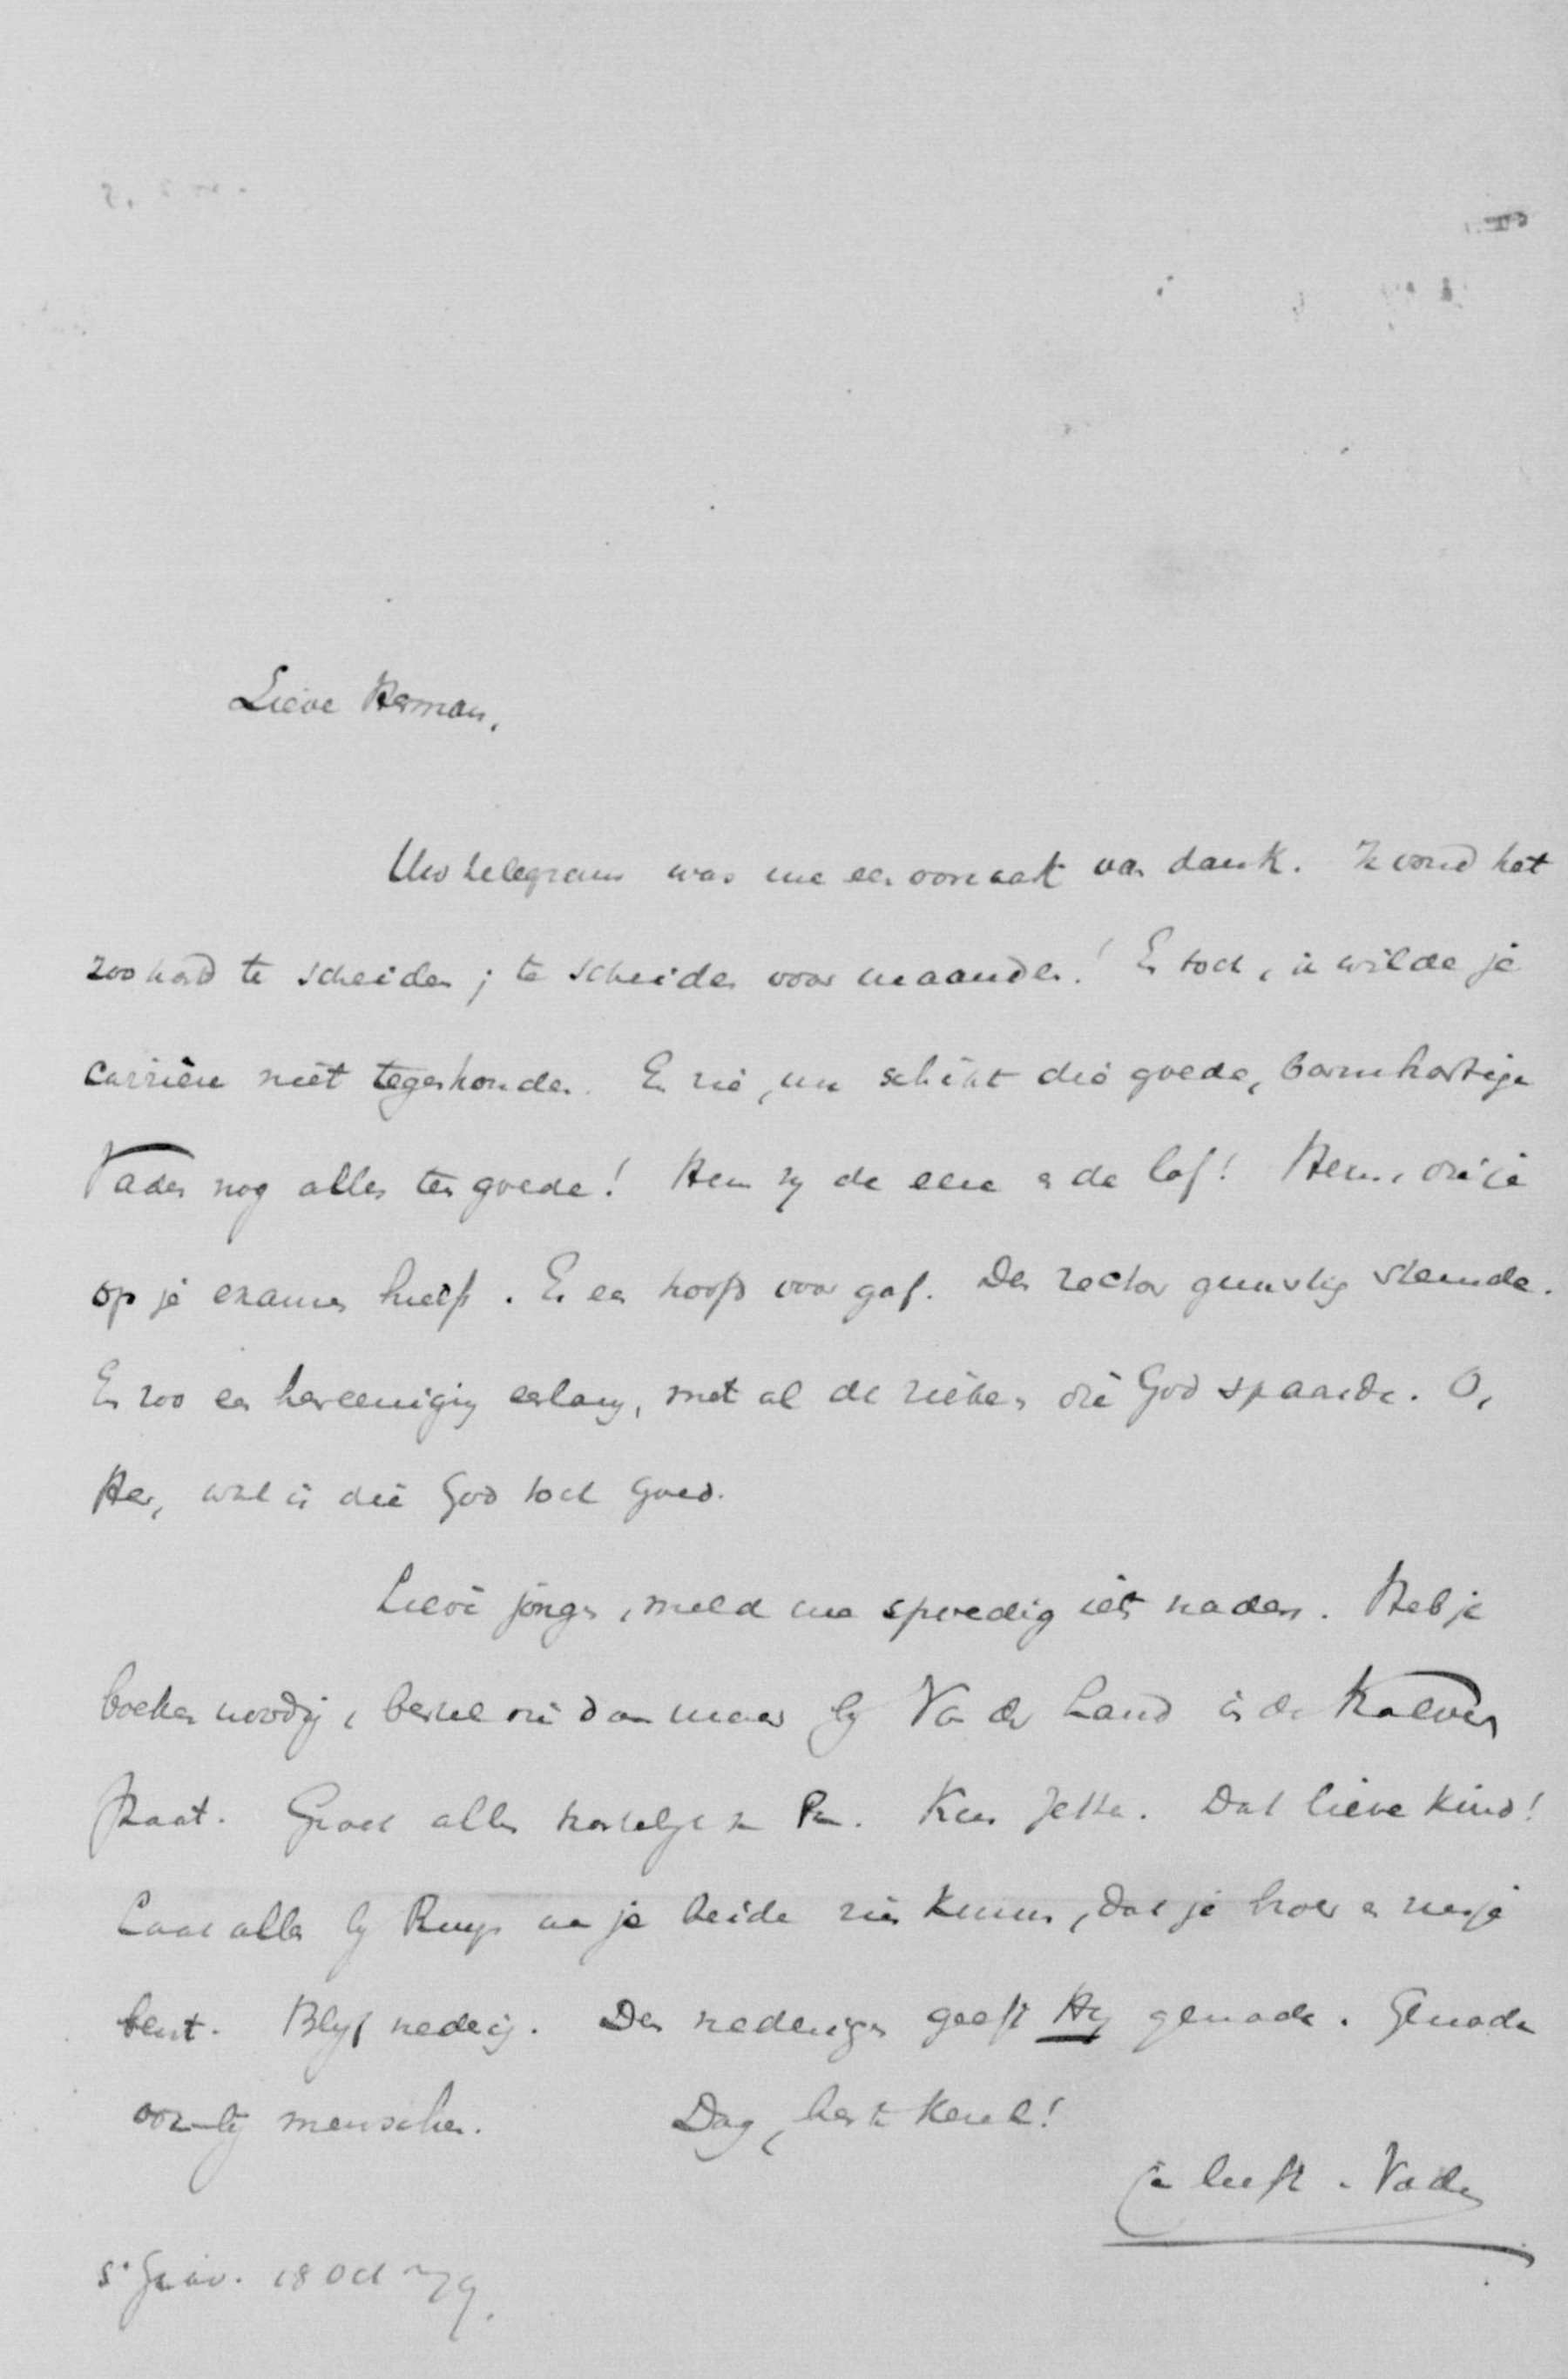 Lieve Herman,
Uw telegram was me een oorzaak van dank. Ik vond het
zoo hard te scheiden; te scheiden voor maanden! En toch, ik wilde je
carrière niet tegenhouden. En zie, nu schikt die goede, barmhartige
Vader nog alles ten goede! Hem zy de eere en de lof! Hem, die je
op je examen hielp. En een hoofd voor gaf. Den rector gunstig stemde.
En zoo een hereeniging eerlang, met al de lieven die God spaarde. O,
Her, wat is die God toch goed.
Lieve jongen, meld me spoedig iets naders. Heb je
boeken noodig, bestel die dan maar by Van der Land in de Kalver
straat. Groet allen hartelyk Kus Jette. Dat lieve kind!
Laat allen by Ruys aan je beide zien kunnen, dat je broer en zusje
bent. Blyf nederig. Den nederigen geeft Hy genade. Genade
ook by menschen. Dag, beste kerel!
Je liefh. Vader
s' Grav. 18 Oct 79.